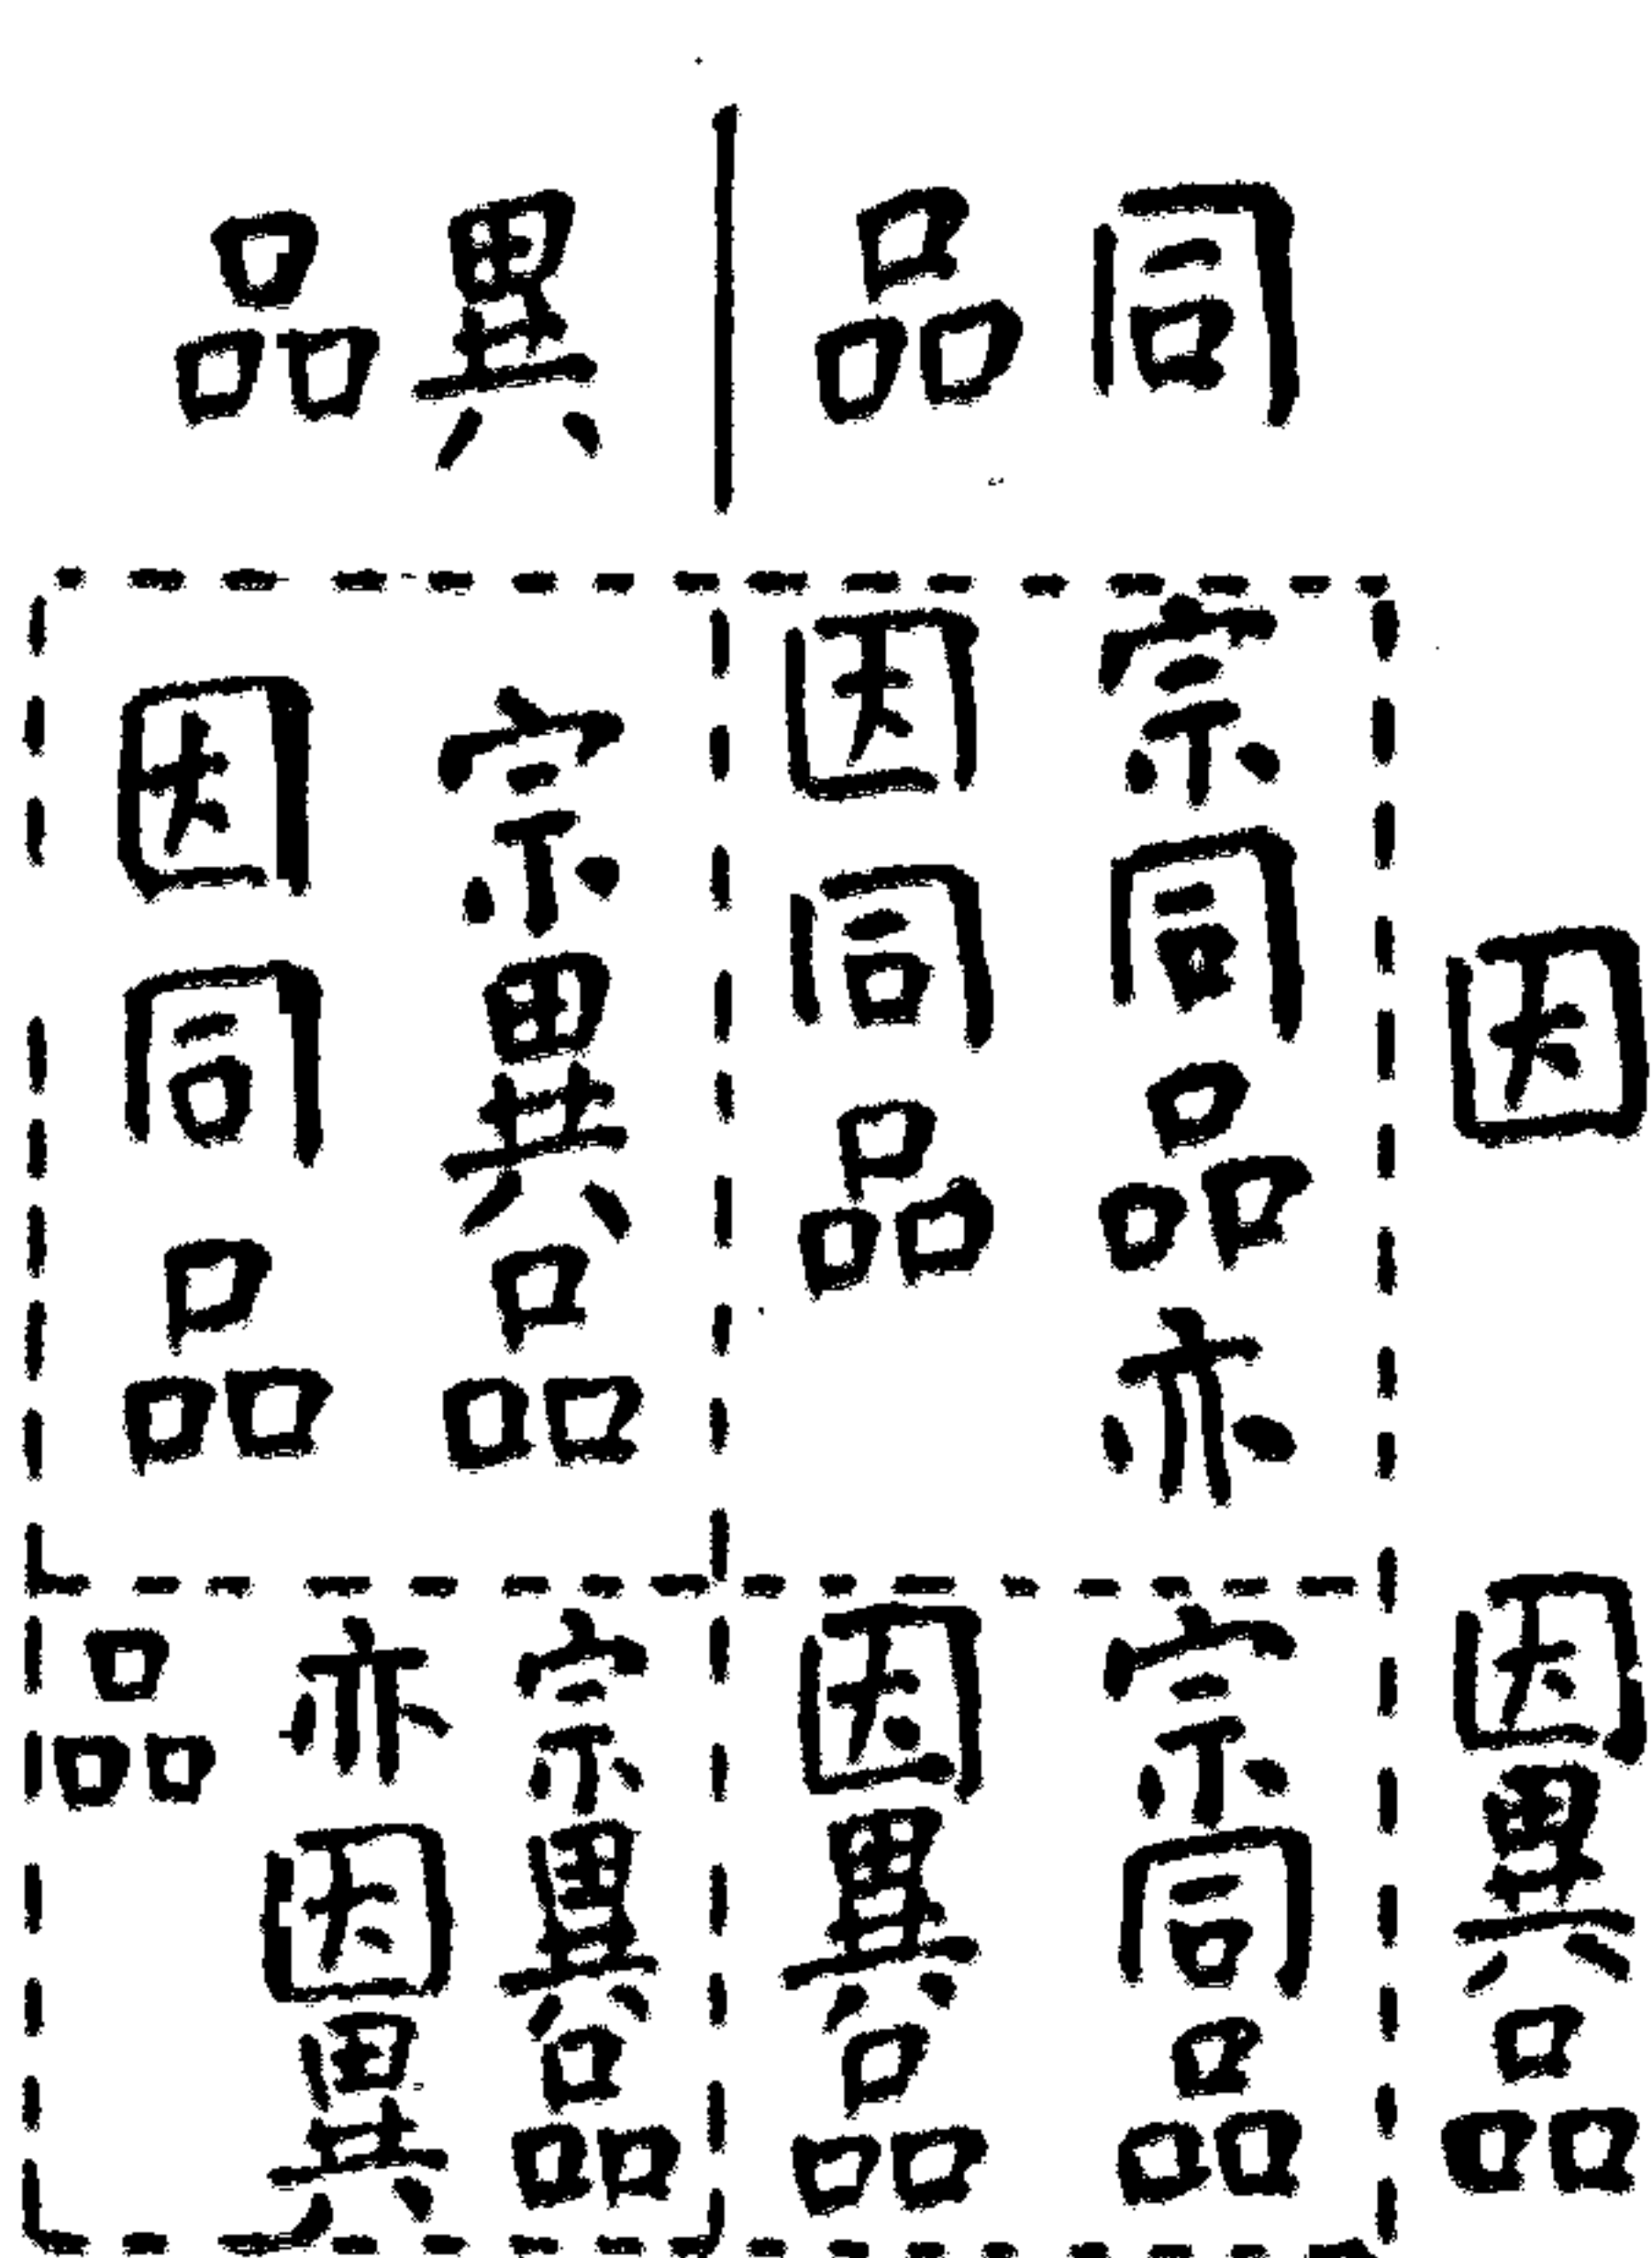 同品
異品
因
因異品
宗同品亦
因同品
宗異品
因同品
宗同品
因異品
宗異品
亦因異
品